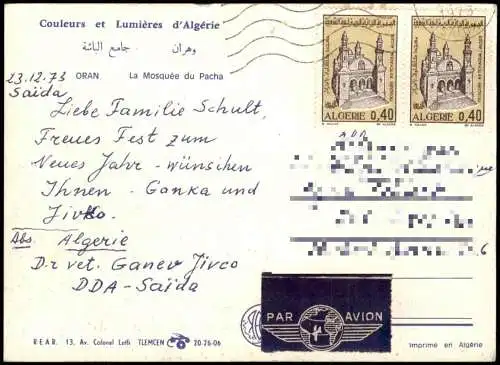 Couleurs et Lumières d'Algérie
وهران جامع الباشة
ORAN La Mosquée du Pacha
23.12.73
Saïda
Liebe Familie Schult,
Freues Fest zum
Neues Jahr - wünschen
Ihnen - Ganka und
Jivko.
Abs. Algerie
Dr vet. Ganev Jivco
DDA - Saïda
R.E.A.R. 13, Av. Colonel Lotfi TLEMCEN 20-76-06
ALGERIE 0,40
ALGERIE 0,40
PAR AVION
Imprimé en Algérie